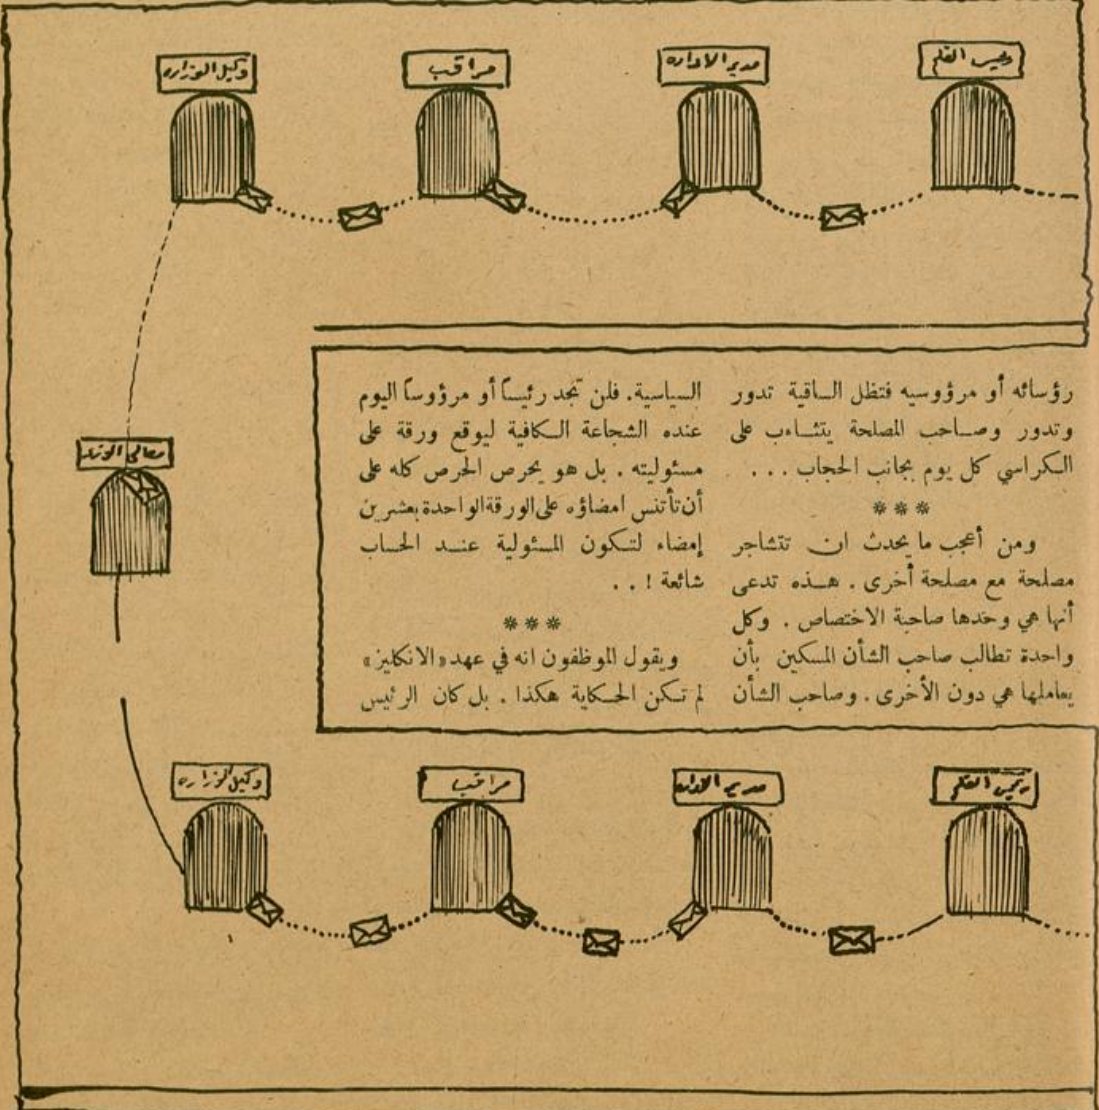 رئيس القلم
مدير الاداره
مراقب
وكيل الوزاره
معالي الوزير
رؤسائه أو مرؤوسيه فتظل الساقية تدور
وتدور وصاحب المصلحة يتثاءب على
الكراسي كل يوم بجانب الحجاب ...
***
ومن أعجب ما يحدث ان تتشاجر
مصلحة مع مصلحة أخرى . هذه تدعى
أنها هي وحدها صاحبة الاختصاص . وكل
واحدة تطالب صاحب الشأن المسكين بأن
يعاملها هي دون الأخرى . وصاحب الشأن
السياسية. فلن تجد رئيساً أو مرؤوساً اليوم
عنده الشجاعة الكافية ليوقع ورقة على
مسئوليته . بل هو يحرص الحرص كله على
أن تأتنس امضاؤه على الورقة الواحدة بعشرين
إمضاء لتكون المسئولية عند الحساب
شائعة ! . .
***
ويقول الموظفون انه في عهد «الانكليز»
لم تكن الحكاية هكذا . بل كان الرئيس
رئيس القلم
مدير الاداره
مراقب
وكيل الوزاره